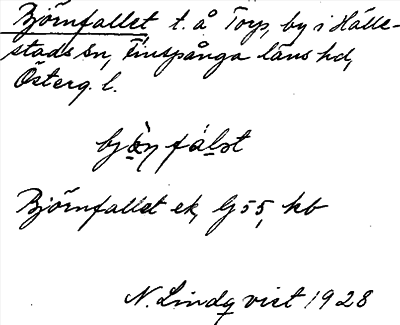 Björnfallet t. å Torp, by i Hälle-
stads sn, Finspånga läns hd,
Österg. l.
Björnfallet ek, G 55, kb
N. Lindqvist 1928